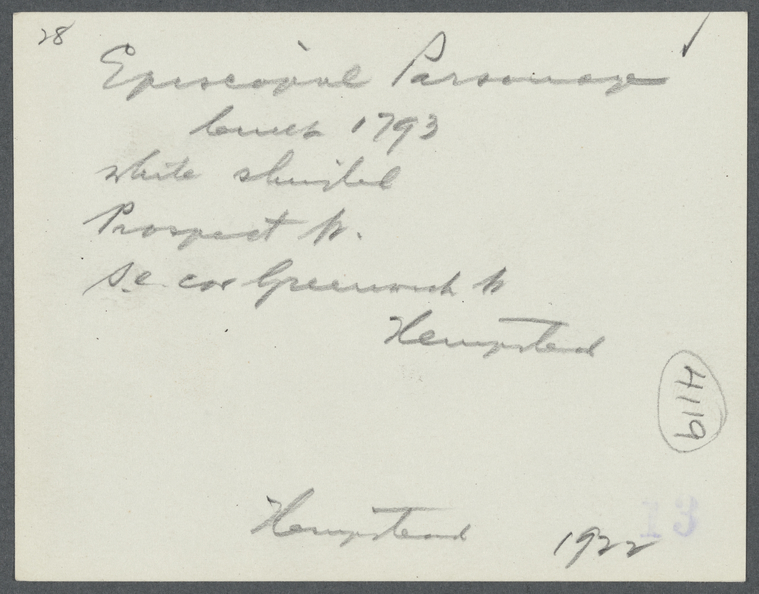 28
Episcopal Parsonage
built 1793
white shingled
Prospect St.
S.e. cor Greenwich St
Hempstead
4119
Hempstead 1922